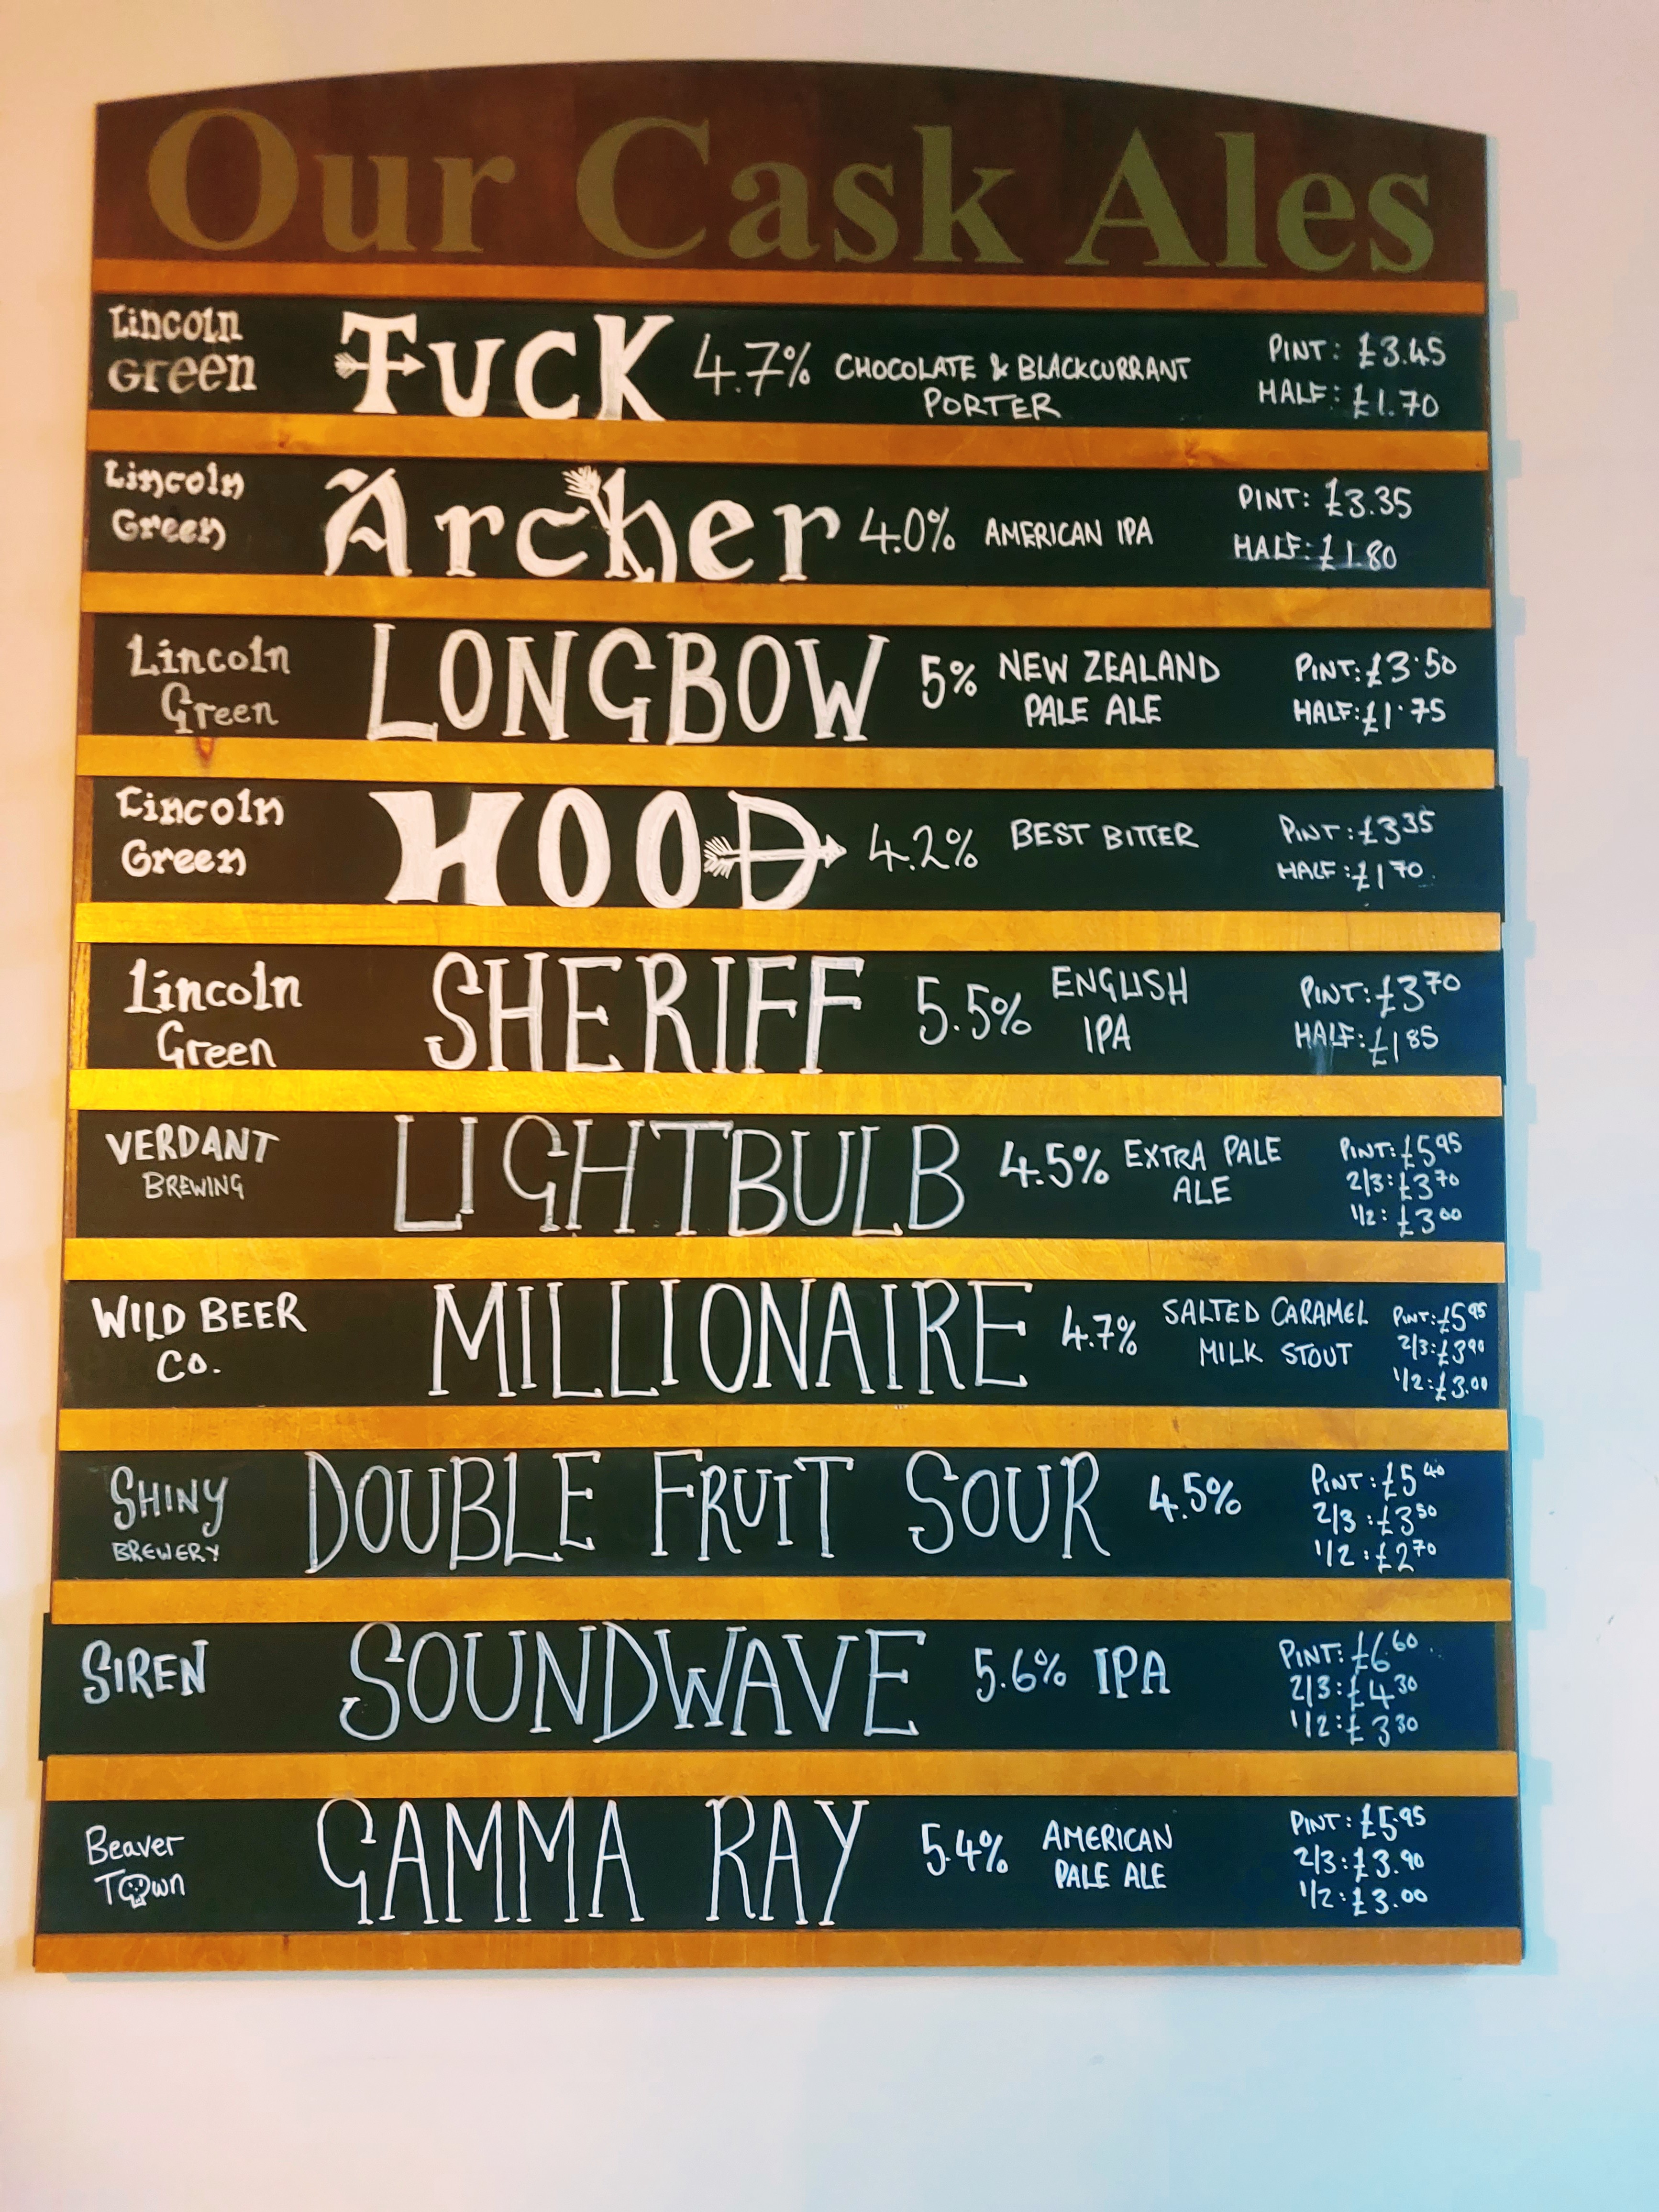 Our Cask Ales
Lincoln Green TUCK 4.7% CHOCOLATE & BLACKCURRANT PORTER PINT: £3.45 HALF: £1.70
Lincoln Green Archer 4.0% AMERICAN IPA PINT: £3.35 HALF: £1.80
Lincoln Green LONGBOW 5% NEW ZEALAND PALE ALE PINT: £3.50 HALF: £1.75
Lincoln Green HOOD 4.2% BEST BITTER PINT: £3 35 HALF: £1 70
Lincoln Green SHERIFF 5.5% ENGLISH IPA PINT: £3 70 HALF: £1 85
VERDANT BREWING LIGHTBULB 4.5% EXTRA PALE ALE PINT: £5 95 2/3: £3 70 1/2: £3 00
WILD BEER CO. MILLIONAIRE 4.7% SALTED CARAMEL MILK STOUT PINT: £5 95 2/3: £3 90 1/2: £3.00
SHINY BREWERY DOUBLE FRUIT SOUR 4.5% PINT: £5 40 2/3: £3 50 1/2: £2 70
SIREN SOUNDWAVE 5.6% IPA PINT: £6 60 2/3: £4 30 1/2: £3 30
Beaver Town GAMMA RAY 5.4% AMERICAN PALE ALE PINT: £5.95 2/3: £3.90 1/2: £3.00